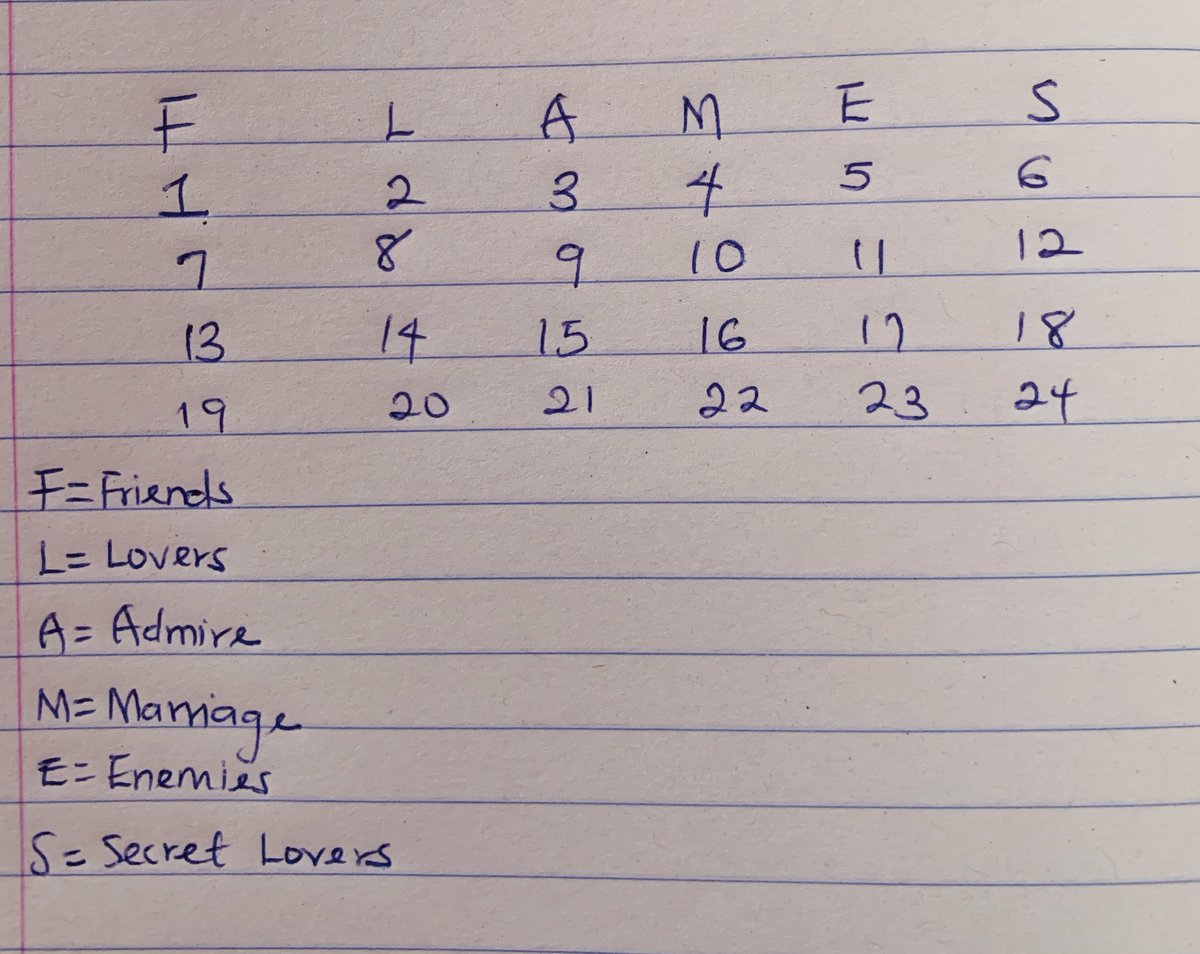 F L A M E S
1 2 3 4 5 6
7 8 9 10 11 12
13 14 15 16 17 18
19 20 21 22 23 24
F=Friends
L= Lovers
A= Admire
M= Marriage
E= Enemies
S= Secret Lovers